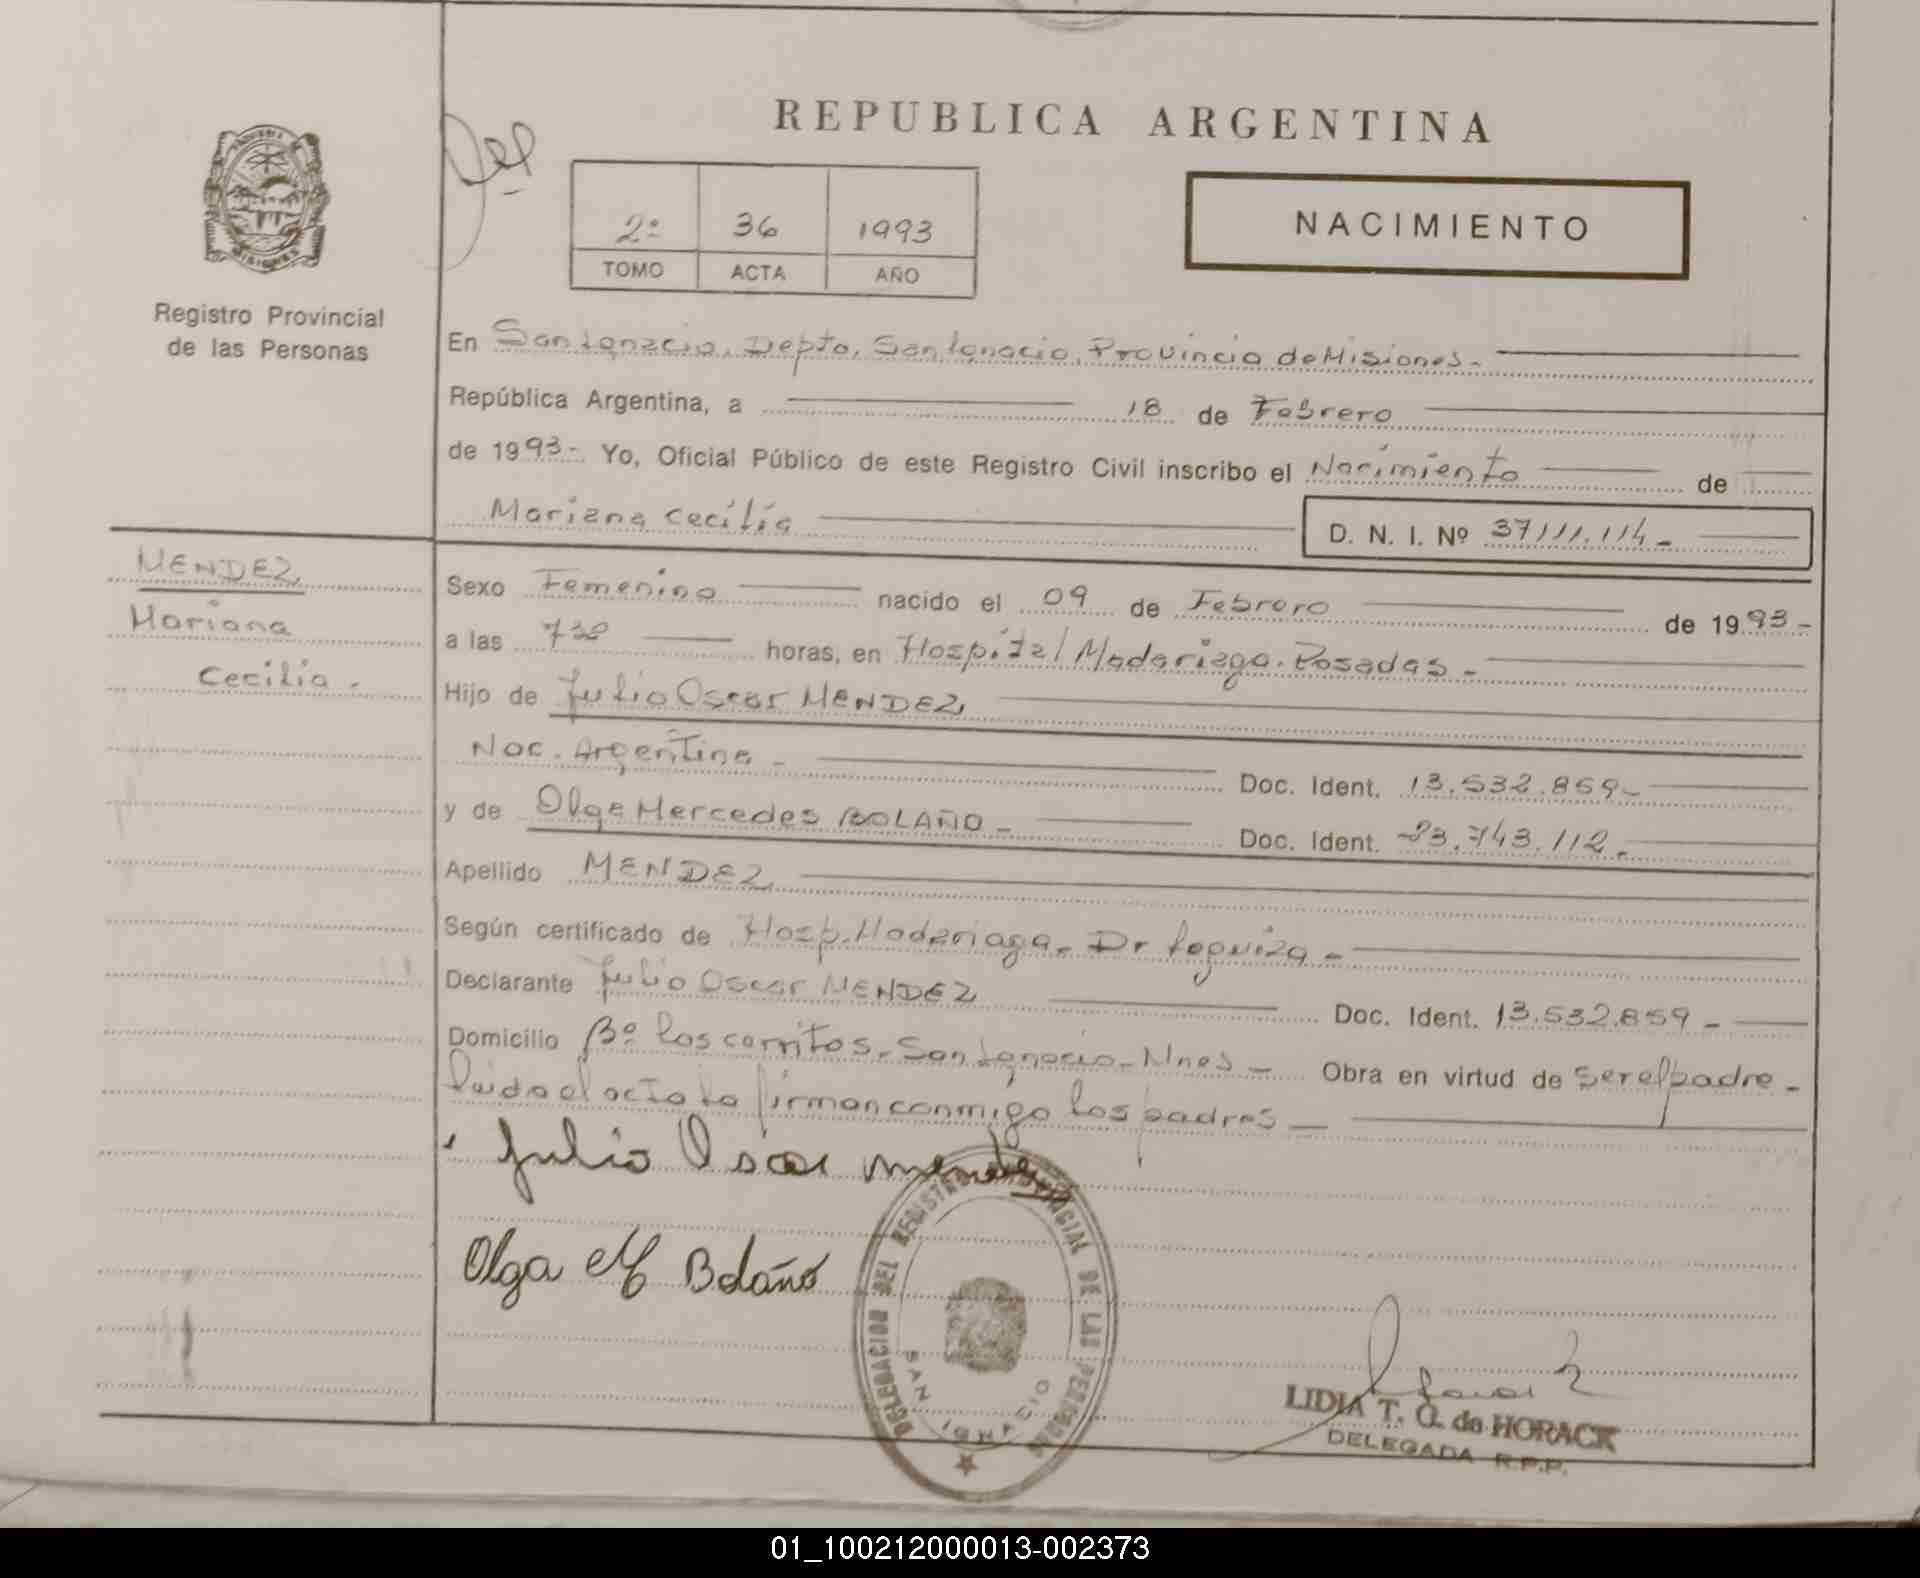 REPUBLICA ARGENTINA
2º 36 1993
TOMO ACTA AÑO
NACIMIENTO
MISIONES
Registro Provincial
de las Personas
En San Ignacio, Depto, San Ignacio, Provincia de Misiones.-
República Argentina, a 18 de Febrero
de 1993- Yo, Oficial Público de este Registro Civil inscribo el Nacimiento de
Mariana Cecilia D. N. I. Nº 37111.114-
MENDEZ
Mariana
Cecilia.-
Sexo Femenino nacido el 09 de Febrero de 1993-
a las 7³⁰ horas, en Hospital Madariaga. Posadas-
Hijo de Julio Oscar MENDEZ
Nac. Argentina- Doc. Ident. 13.532.859-
y de Olga Mercedes BOLAÑO- Doc. Ident. 23.743.112.-
Apellido MENDEZ
Según certificado de Hosp. Madariaga. Dr Leguiza-
Declarante Julio Oscar MENDEZ Doc. Ident. 13.532.859-
Domicilio Bº Los carritos. San Ignacio-Mnes- Obra en virtud de ser el padre-
Leida el acta la firman conmigo los padres-
Julio Oscar Mendez
Olga M Bolaño
DELEGACION DEL REGISTRO PROVINCIAL DE LAS PERSONAS
SAN IGNACIO
LIDIA T. O. de HORACK
DELEGADA R.P.P.
01_100212000013-002373